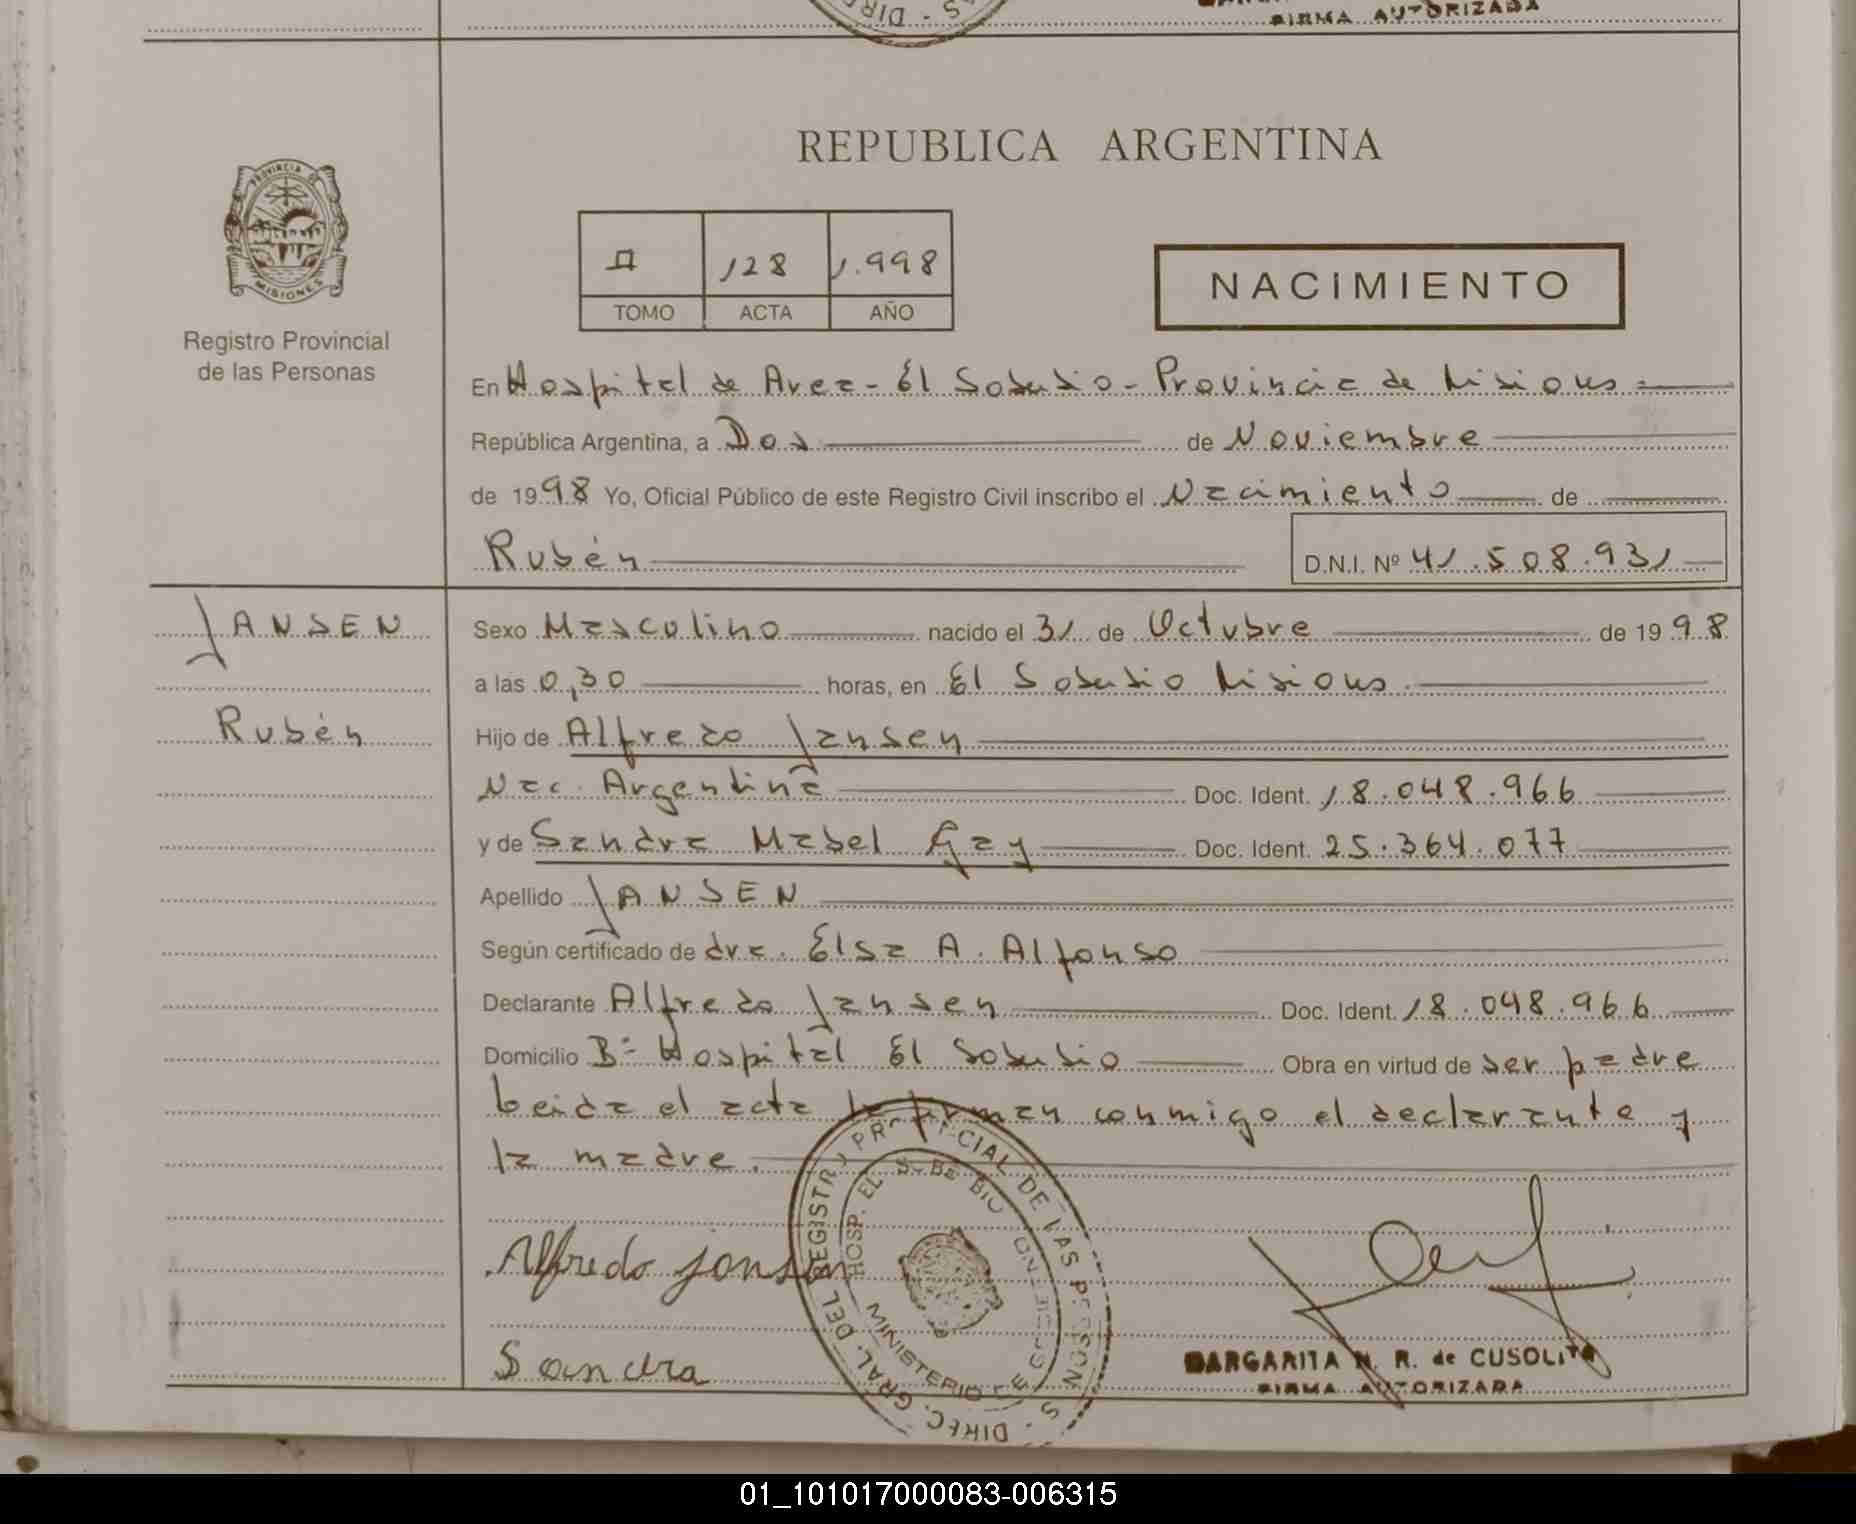 FIRMA AUTORIZADA
REPUBLICA ARGENTINA
PROVINCIA DE MISIONES
Registro Provincial
de las Personas
II 128 1.998
TOMO ACTA AÑO
NACIMIENTO
En Hospital de Area - El Soberbio - Provincia de Misiones
República Argentina, a Dos de Noviembre
de 1998 Yo, Oficial Público de este Registro Civil inscribo el Nacimiento de
Rubén D.N.I. Nº 41.508.931
JANSEN
Rubén
Sexo Masculino nacido el 31 de Octubre de 1998
a las 0,30 horas, en El Soberbio Misiones
Hijo de Alfredo Jansen
Nac. Argentina Doc. Ident. 18.048.966
y de Sandra Mabel Gay Doc. Ident. 25.364.077
Apellido JANSEN
Según certificado de dra. Elsa A. Alfonso
Declarante Alfredo Jansen Doc. Ident. 18.048.966
Domicilio Bº Hospital El Soberbio Obra en virtud de ser padre
Leida el acta la firman conmigo el declarante y
la madre.
Alfredo jansen
Sandra
DIREC. GRAL. DEL REGISTRO PROVINCIAL DE LAS PERSONAS
HOSP. EL SOBERBIO
MINISTERIO DE GOBIERNO
MARGARITA N. R. de CUSOLITO
FIRMA AUTORIZADA
01_101017000083-006315